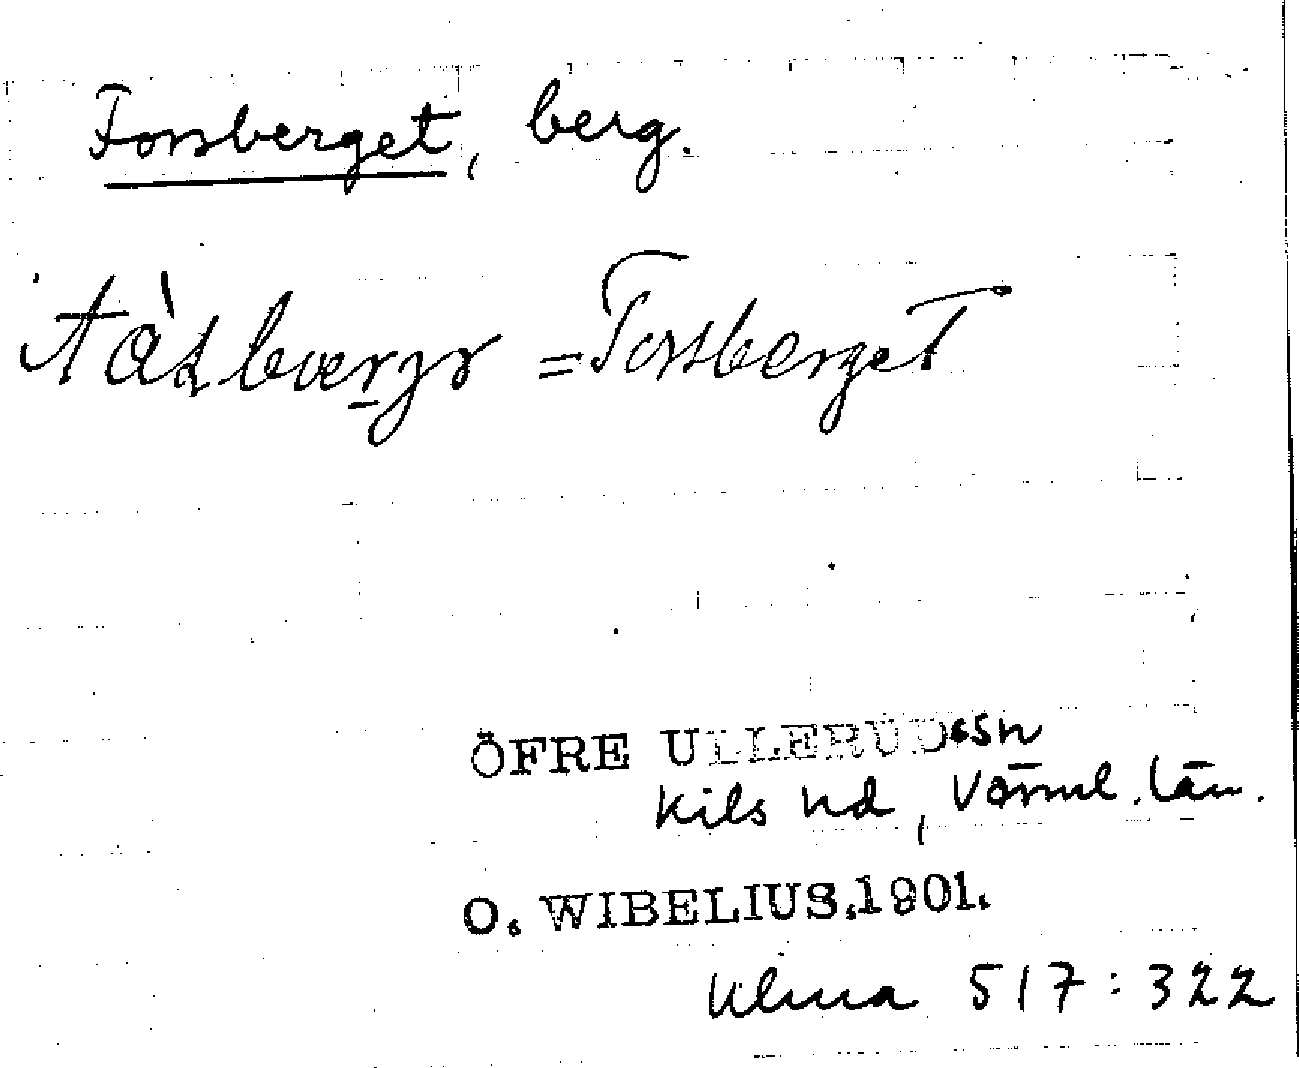 Forsberget, berg.
= Forsberget
ÖFRE ULLERUD ssn
Kils hd, Värml. län.
O. WIBELIUS.1901.
Ulma 517:322